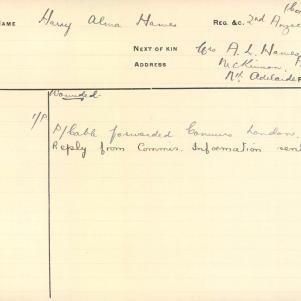 NAME Harry Alma Hawes REG. &C. 2nd Anzac
NEXT OF KIN Mrs A. L. Hawes
ADDRESS McKinnon
Nth Adelaide
Wounded.
1/P P/Cable forwarded Commrs London.
Reply from Commrs. Information sent